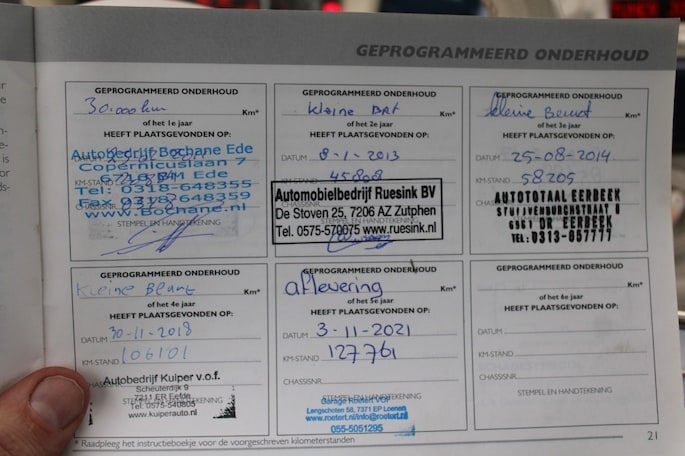 GEPROGRAMMEERD ONDERHOUD
GEPROGRAMMEERD ONDERHOUD
30.000 km
Km*
of het 1e jaar
HEEFT PLAATSGEVONDEN OP:
DATUM
Autobedrijf Bochane Ede
Copernicuslaan 7
6716 BM Ede
KM-STAND
Tel: 0318-648355
Fax 0318-648359
CHASSISNR.
www.Bochane.nl
STEMPEL EN HANDTEKENING
GEPROGRAMMEERD ONDERHOUD
kleine
Km*
of het 2e jaar
HEEFT PLAATSGEVONDEN OP:
DATUM 8-1-2013
KM-STAND 45808
Automobielbedrijf Ruesink BV
De Stoven 25, 7206 AZ Zutphen
Tel. 0575-570075 www.ruesink.nl
GEPROGRAMMEERD ONDERHOUD
kleine Beurt
Km*
of het 3e jaar
HEEFT PLAATSGEVONDEN OP:
DATUM 25-08-2014
KM-STAND 58205
CHASSISNR.
AUTOTOTAAL EERBEEK
6961 DR EERBEEK
TEL: 0313-657777
GEPROGRAMMEERD ONDERHOUD
kleine
Km*
of het 4e jaar
HEEFT PLAATSGEVONDEN OP:
DATUM 30-11-2018
KM-STAND 106101
CHASSISNR.
Autobedrijf Kuiper v.o.f.
Scheuterdijk 9
7211 ER Eefde
Tel. 0575-540805
www.kuiperauto.nl
GEPROGRAMMEERD ONDERHOUD
aflevering
Km*
of het 5e jaar
HEEFT PLAATSGEVONDEN OP:
DATUM 3-11-2021
KM-STAND 127761
CHASSISNR.
STEMPEL EN HANDTEKENING
Garage Roetert VOF
Lengschoten 58, 7371 EP Loenen
www.roetert.nl/info@roetert.nl
055-5051295
GEPROGRAMMEERD ONDERHOUD
Km*
of het 6e jaar
HEEFT PLAATSGEVONDEN OP:
DATUM
KM-STAND
CHASSISNR.
STEMPEL EN HANDTEKENING
* Raadpleeg het instructieboekje voor de voorgeschreven kilometerstanden
21